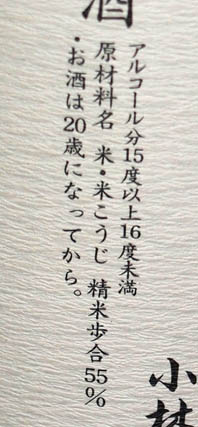 酒
アルコール分15度以上16度未満
原材料名 米・米こうじ 精米歩合55%
・お酒は20歳になってから。
小林